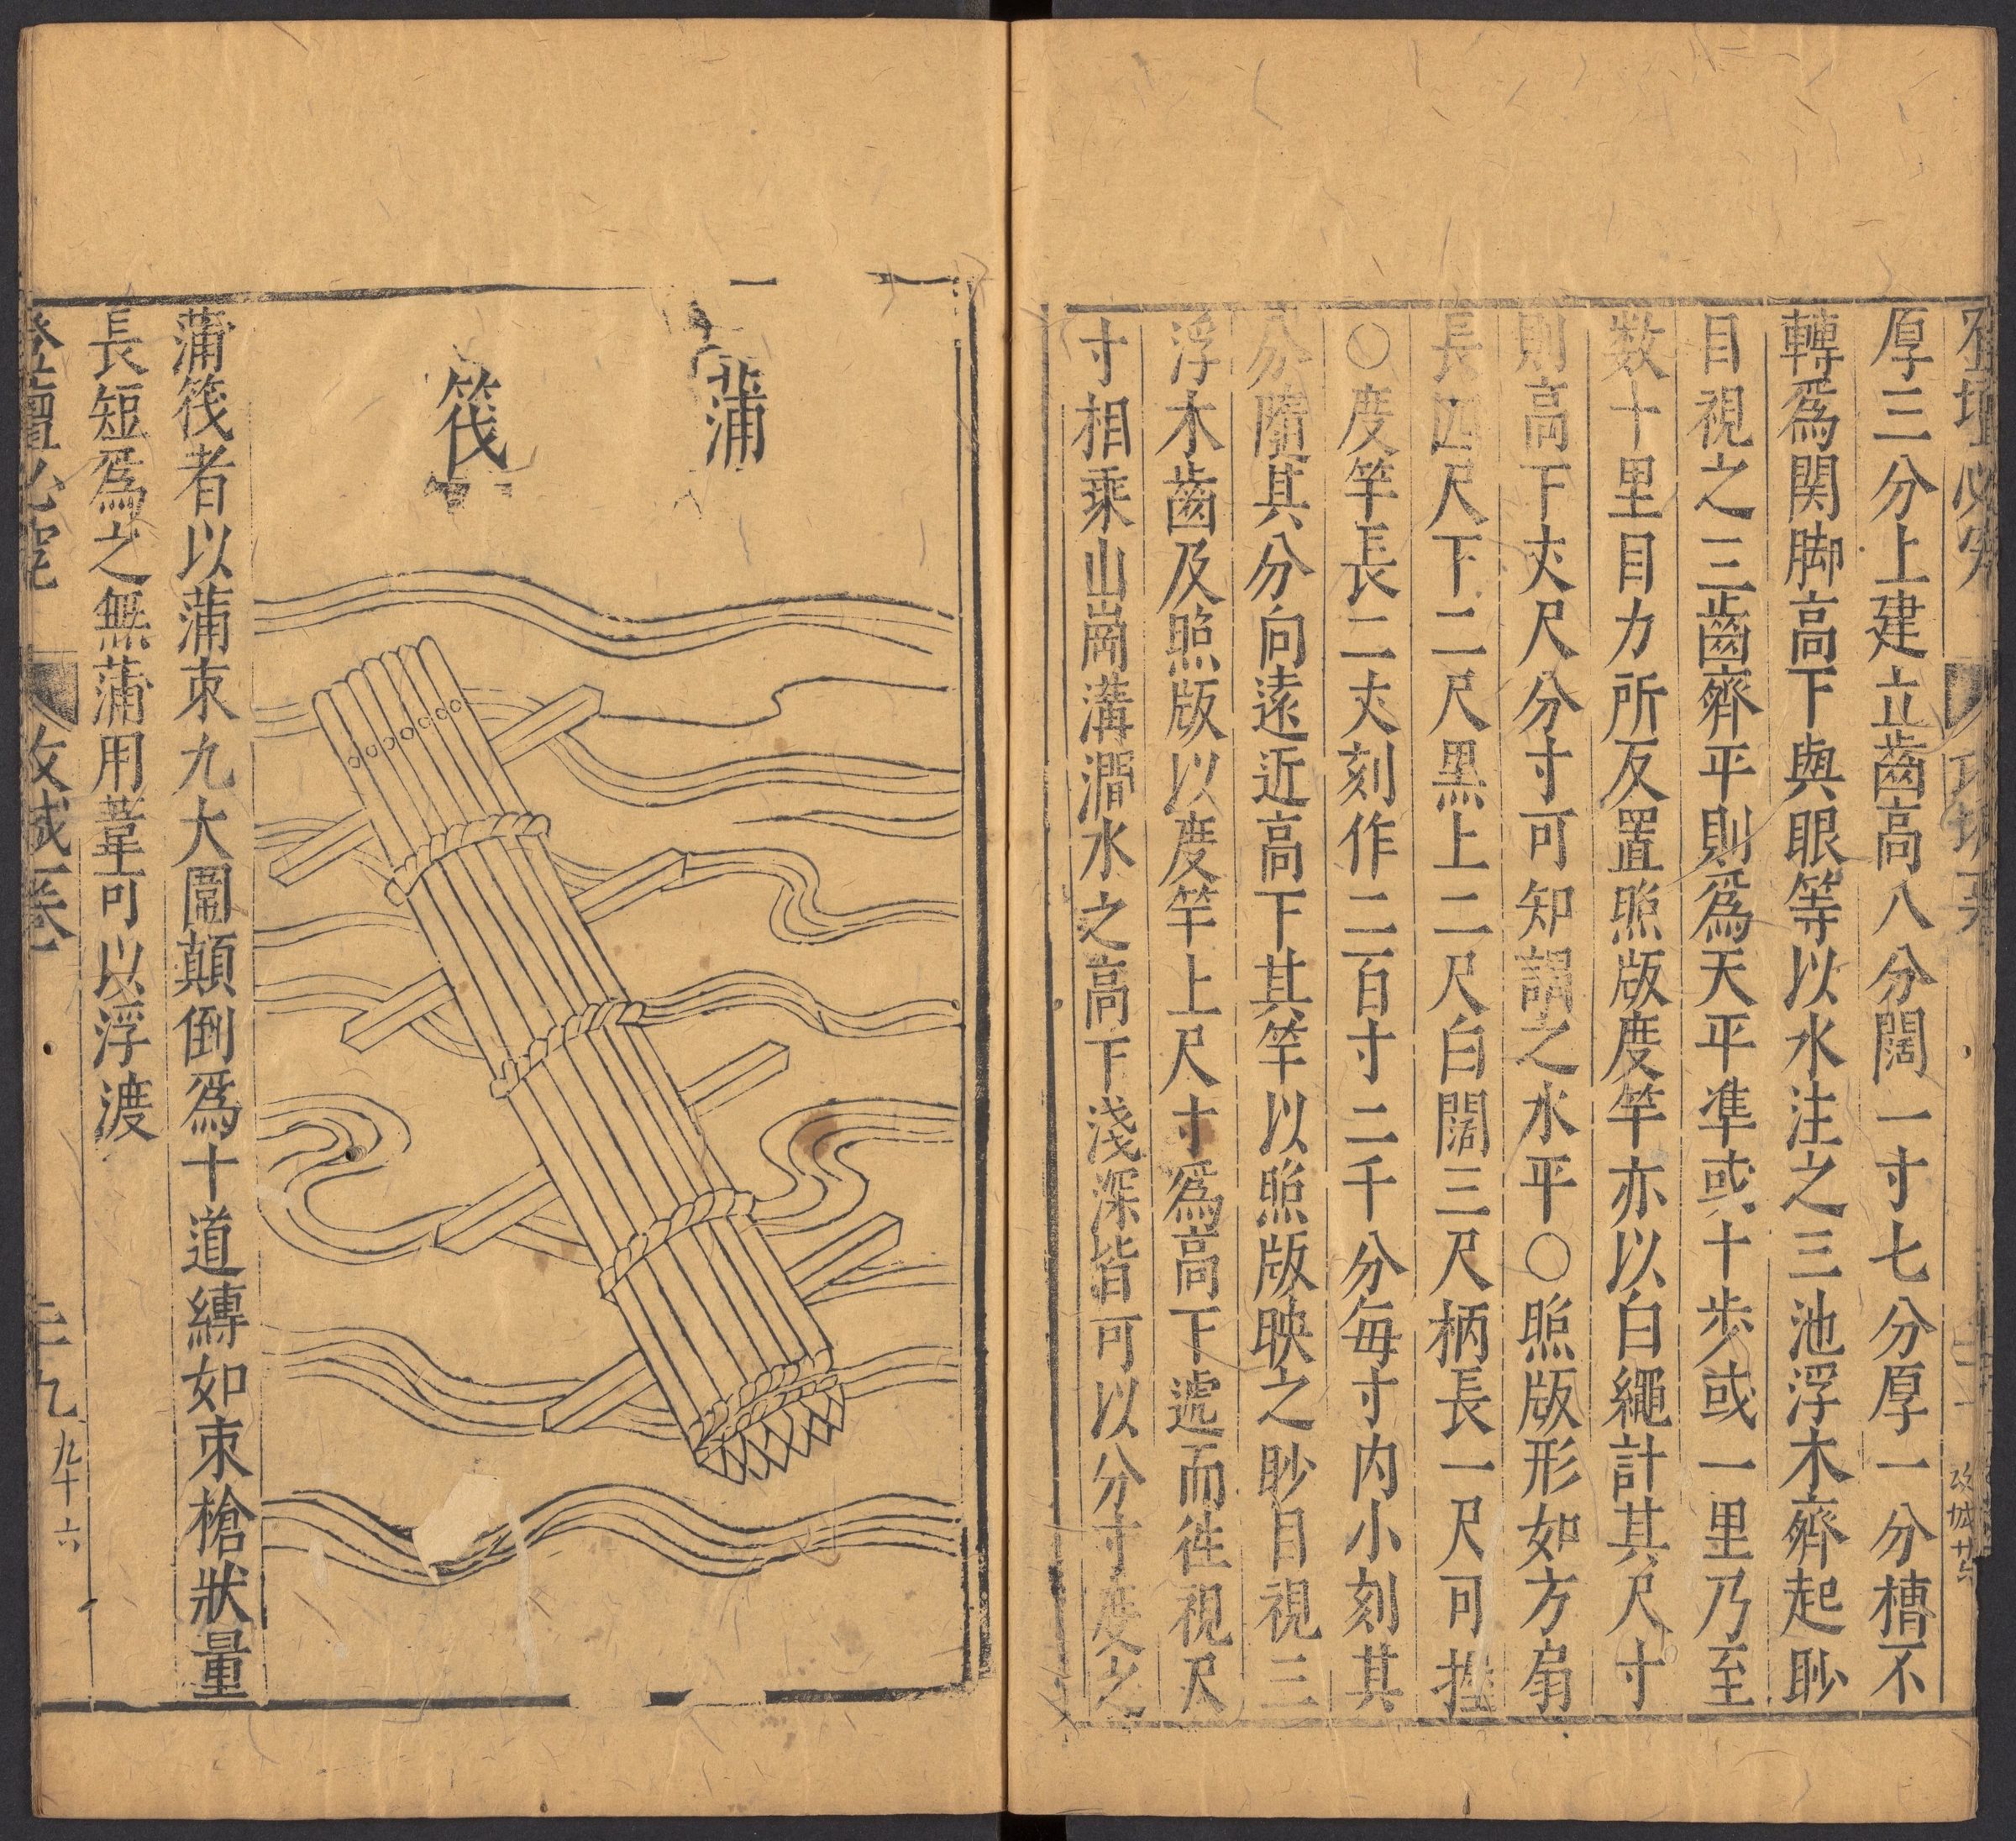 登壇必究
攻城
厚三分上建立齒高八分闊一寸七分厚一分槽不
轉爲関脚高下與眼等以水注之三池浮木齊起眇
目視之三齒齊平則爲天平準或十步或一里乃至
数十里目力所及置照版度竿亦以白繩計其尺寸
則高下丈尺分寸可知謂之水平○照版形如方扇
長四尺下二尺黑上二尺白闊三尺柄長一尺可
○度竿長二丈刻作二百寸二千分每寸内小刻其
分隨其分向遠近高下其竿以照版映之眇目視三
浮木齒及照版以度竿上尺寸爲高下遞而徃視尺
寸相乘山崗溝澗水之高下淺深皆可以分寸度之
蒲
筏
蒲筏者以蒲束九大圍顛倒爲十道縛如束槍狀量
長短爲之無蒲用葦可以浮渡
登壇必究
攻城一卷
九十六